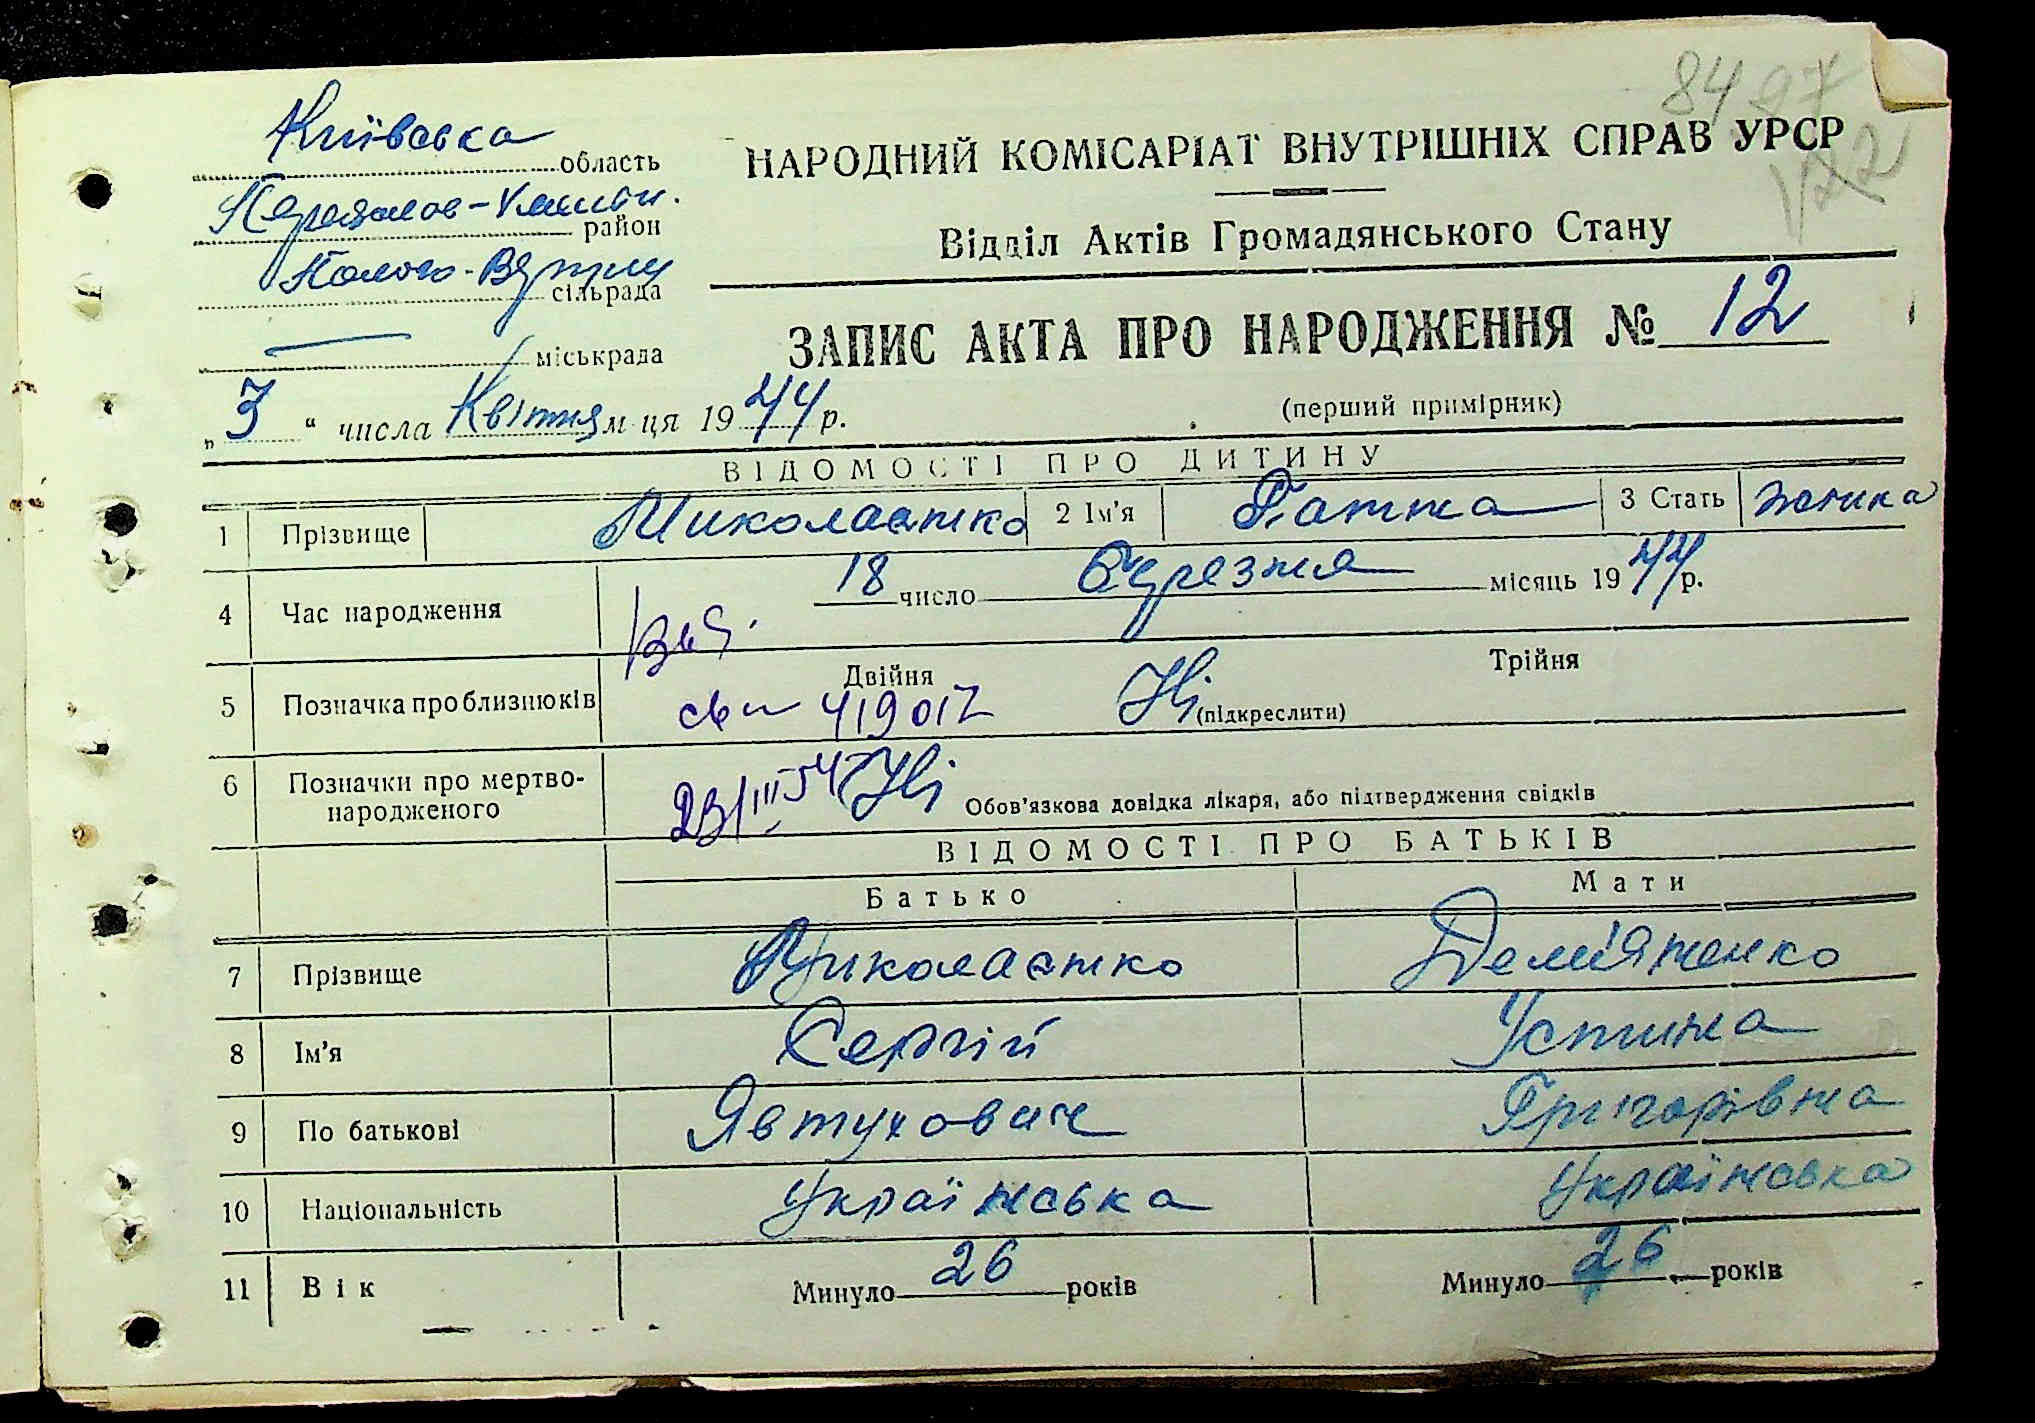 84 97
122
Київська область
НАРОДНИЙ КОМІСАРІАТ ВНУТРІШНІХ СПРАВ УРСР
Переяслов-Хмельн. район
Відділ Актів Громадянського Стану
Полого-Вергуни сільрада
міськрада
ЗАПИС АКТА ПРО НАРОДЖЕННЯ № 12
„3“ числа Квітня м-ця 1944 р.
(перший примірник)
ВІДОМОСТІ ПРО ДИТИНУ
1 Прізвище Миколаєнко 2 Ім'я Ганна 3 Стать жінка
4 Час народження 18 число березня місяць 1944 р.
5 Позначка про близнюків Двійня Ні (підкреслити) Трійня
419017
6 Позначки про мертвонародженого Ні Обов'язкова довідка лікаря, або підтвердження свідків
23/III 54
ВІДОМОСТІ ПРО БАТЬКІВ
Батько Мати
7 Прізвище Миколаєнко Дем'яненко
8 Ім'я Сергій Устина
9 По батькові Явтухович Григорівна
10 Національність Українська Українська
11 Вік Минуло 26 років Минуло 26 років